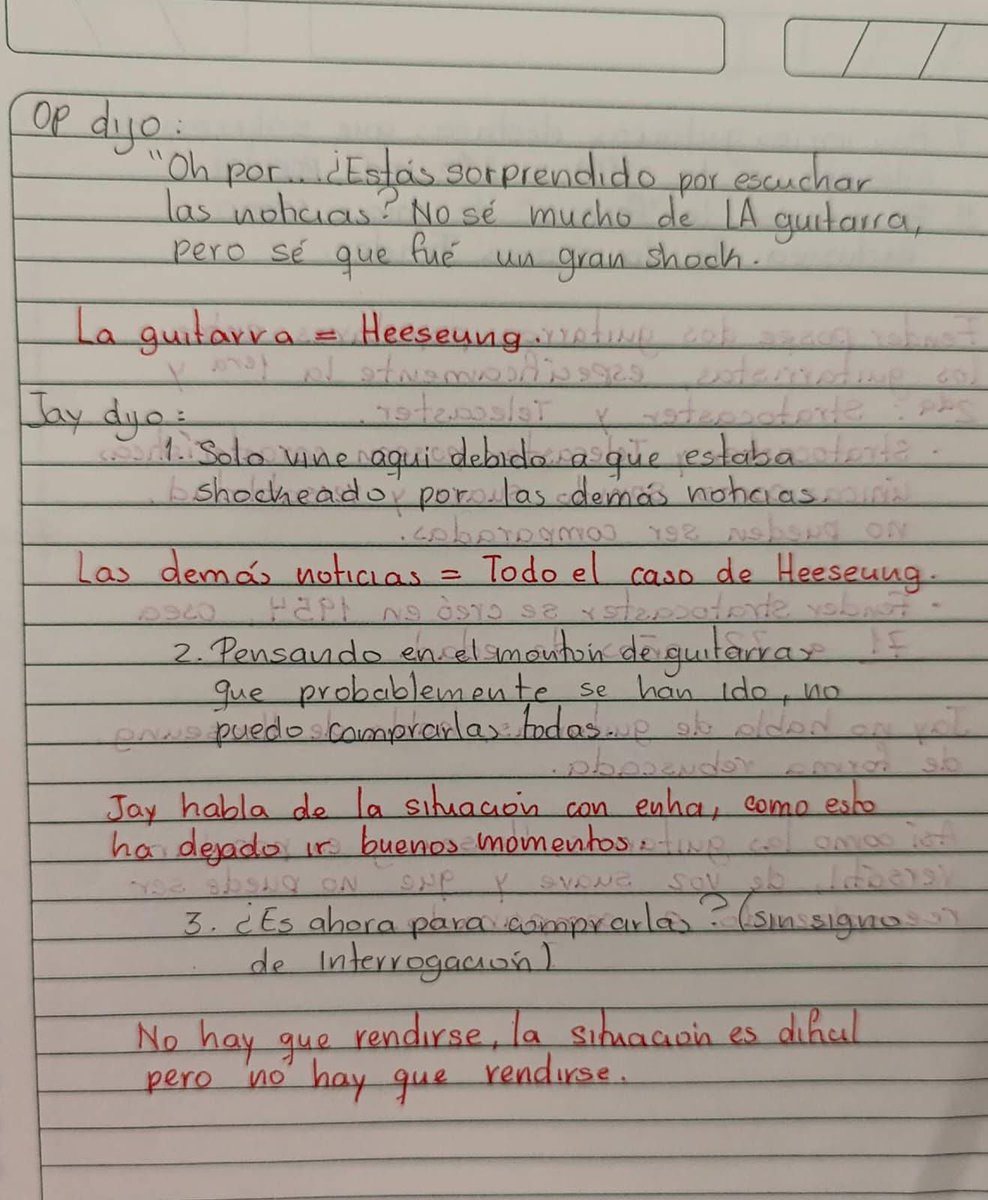 OP dijo:
"Oh por... ¿Estás sorprendido por escuchar
las noticias? No sé mucho de LA guitarra,
pero sé que fué un gran shock.
La guitarra = Heeseung.
Jay dijo:
1. Solo vine aqui debido a que estaba
shockeado por las demás noticias.
Las demás noticias = Todo el caso de Heeseung.
2. Pensando en el montón de guitarras
que probablemente se han ido, no
puedo comprarlas todas.
Jay habla de la situación con enha, como esto
ha dejado ir buenos momentos.
3. ¿Es ahora para comprarlas? (sin signo
de interrogación)
No hay que rendirse, la situación es dificil
pero no hay que rendirse.